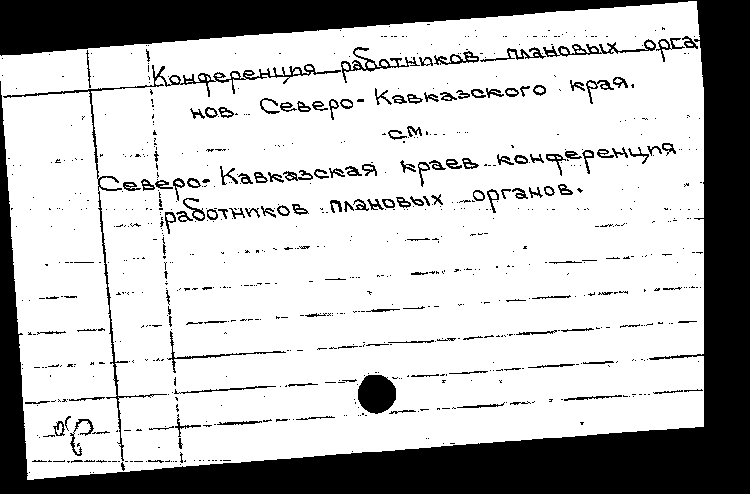 Конференция работников плановых орга-
нов Северо-Кавказского края.
см.
Северо-Кавказская краев. конференция
работников плановых органов.